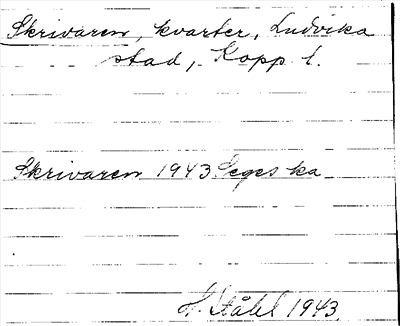 Skrivaren, kvarter, Ludvika
stad, Kopp. l.
Skrivaren 1943 Seges ka
H. Ståhl 1943.